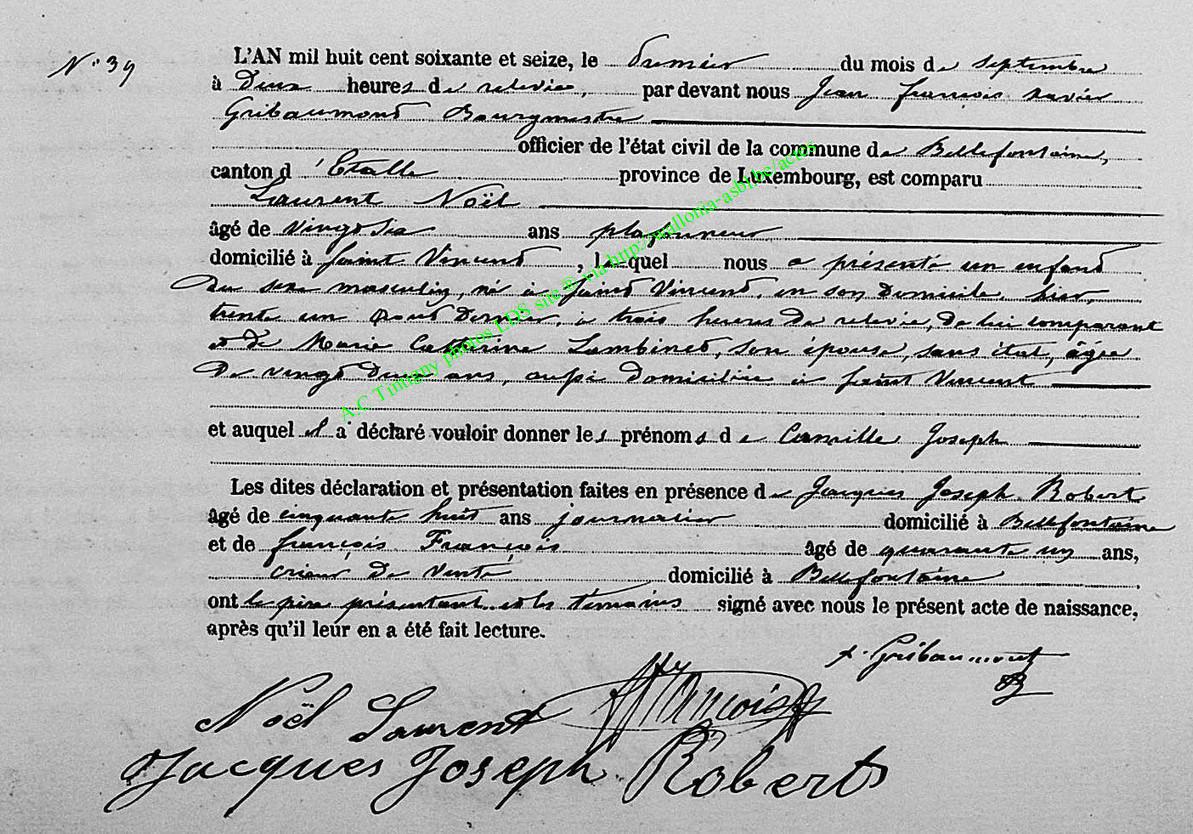 N.° 39
L'AN mil huit cent soixante et seize, le premier du mois de septembre
à Deux heures de relevée, par devant nous Jean françois xavier
Gribaumont Bourgmestre
officier de l'état civil de la commune de Bellefontaine,
canton d'Etalle province de Luxembourg, est comparu
Laurent Noël
âgé de vingt six ans plafonneur
domicilié à saint Vincent, lequel nous a présenté un enfant
du sexe masculin, né à saint Vincent, en son domicile, hier,
trente un août dernier, à trois heures de relevée, de lui comparant
et de Marie Catherine Lambinet, son épouse, sans état, âgée
de vingt deux ans, aussi domiciliée à saint Vincent
et auquel il a déclaré vouloir donner les prénoms de Camille Joseph
Les dites déclaration et présentation faites en présence de Jacques Joseph Robert
âgé de cinquante huit ans journalier domicilié à Bellefontaine
et de françois François âgé de quarante un ans,
crieur de vente domicilié à Bellefontaine
ont le père présentant et les témoins signé avec nous le présent acte de naissance,
après qu'il leur en a été fait lecture.
x. Gribaumont
Noël Laurent
François
Jacques Joseph Robert
A.C Tintigny photos LDS site © via http://wallonia-asbl.be/actes